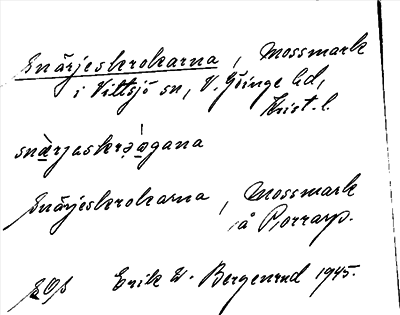 Snärjeskrokarna, Mossmark
i Vittsjö sn, V. Göinge hd,
Krist. l.
snärjaskrǫ́agana
Snärjeskrokarna, Mossmark
på Porrarp.
Erik W. Bergenrud 1945.